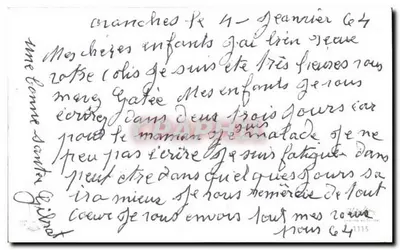 avranches le 4 - Jeanvier 64
Mes chères enfants j'ai bien recue
votre colis je suis ete très heureus vous
mavez Gatée Mes enfants je vous
ecrirez dans deux trois jours car
pour le moment je suis malade je ne
peu pas ecrire je suis fatiguer dans
peut etre dans quelques jours sa
ira mieux je vous remercie de tout
coeur je vous envois tout mes voeux
pour 64
une bonne santée